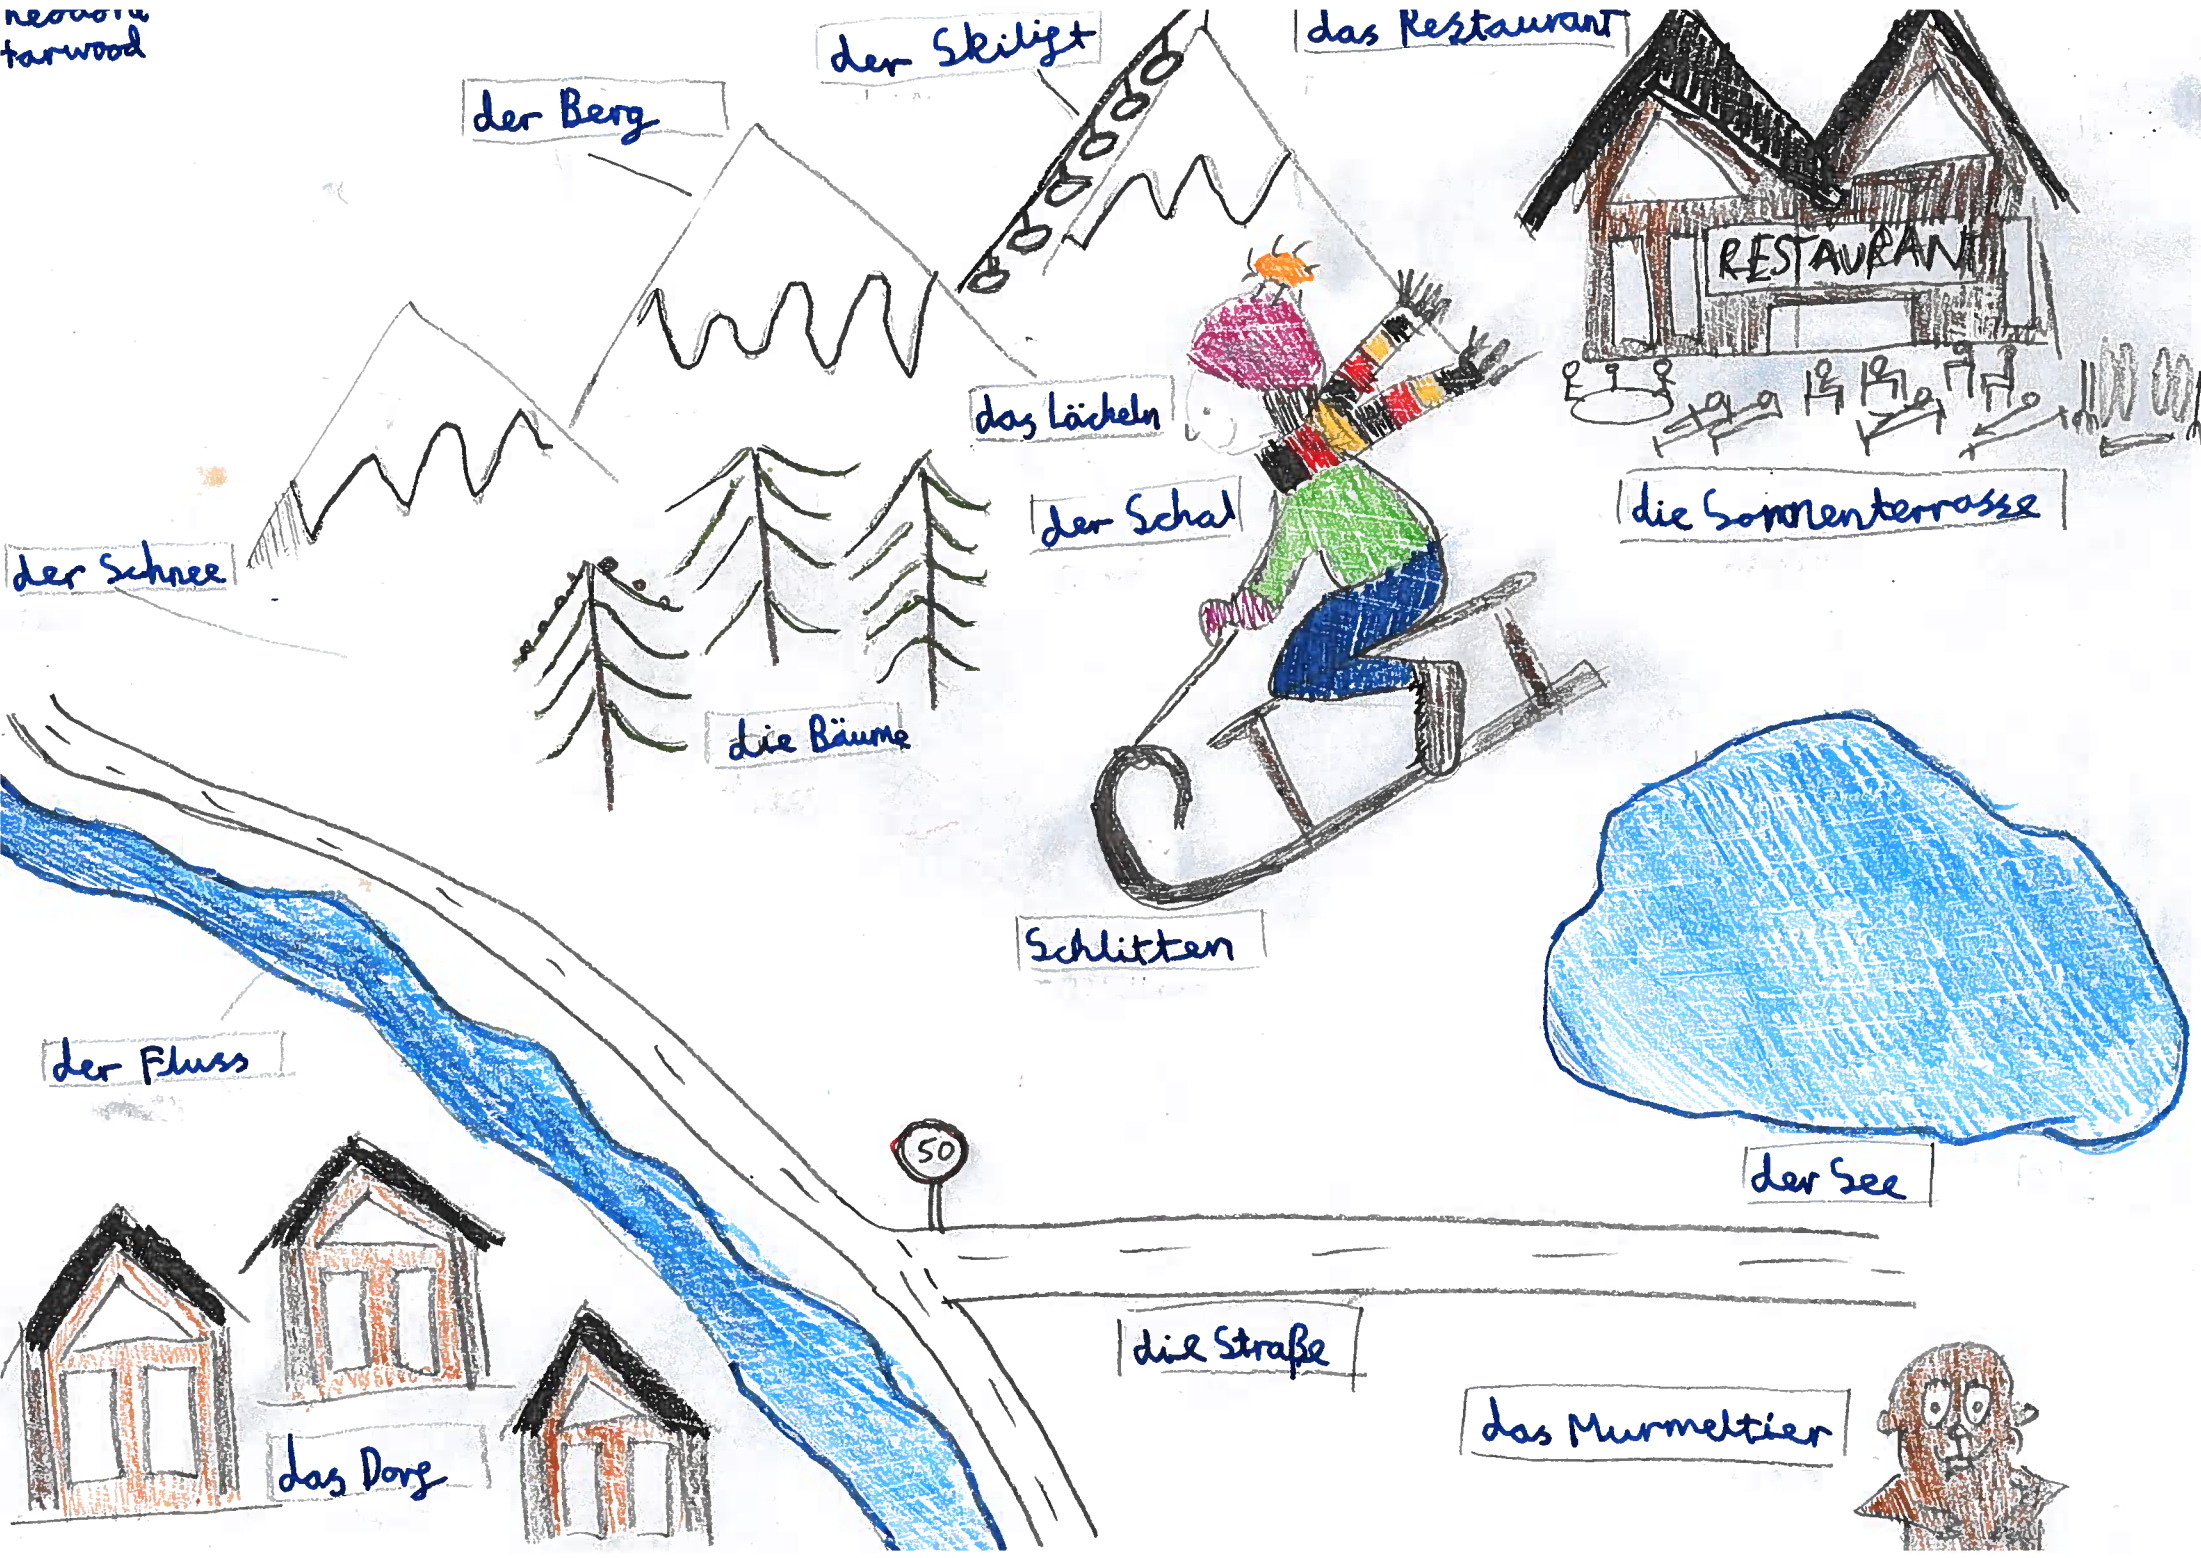 tarwood
der Skilift
das Restaurant
der Berg
RESTAURANT
das Lächeln
der Schal
die Sonnenterrasse
der Schnee
die Bäume
Schlitten
der Fluss
50
der See
die Straße
das Murmeltier
das Dorf